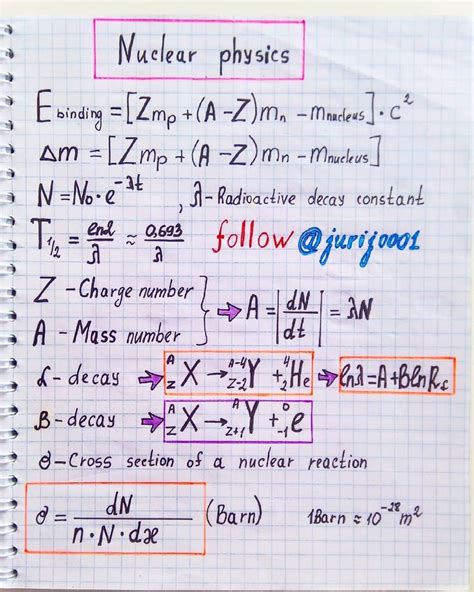 Nuclear physics
E binding = [Zmp + (A - Z)mn - mnucleus] · c²
Δm = [Zmp + (A - Z)mn - mnucleus]
N = N₀ · e^-λt , λ - Radioactive decay constant
T₁/₂ = ln2/λ ≈ 0,693/λ follow @jurij0001
Z - Charge number
A - Mass number } ⇨ A = |dN/dt| = λN
α - decay ⇨ ᴬ_Z X → ᴬ⁻⁴_Z-2 Y + ⁴₂He ⇨ lnλ = A + BlnRc
β - decay ⇨ ᴬ_Z X → ᴬ_Z+1 Y + ⁰₋₁e
σ - Cross section of a nuclear reaction
σ = dN / n · N · dx (Barn) 1Barn ≈ 10⁻²⁸ m²